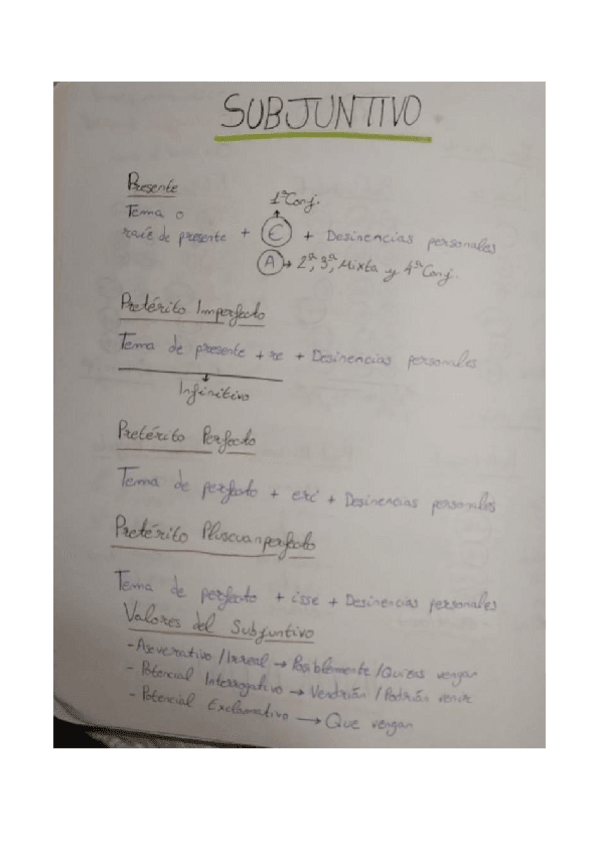 SUBJUNTIVO
Presente
1ª Conj.
Tema o
raíz de presente + E + Desinencias personales
A → 2ª, 3ª, Mixta y 4ª Conj.
Pretérito Imperfecto
Tema de presente + re + Desinencias personales
Infinitivo
Pretérito Perfecto
Tema de perfecto + eri + Desinencias personales
Pretérito Pluscuanperfecto
Tema de perfecto + isse + Desinencias personales
Valores del Subjuntivo
- Aseverativo / Irreal → Posiblemente / Quizás vengan
- Potencial Interrogativo → Vendrián / Podrián venir
- Potencial Exclamativo → Que vengan